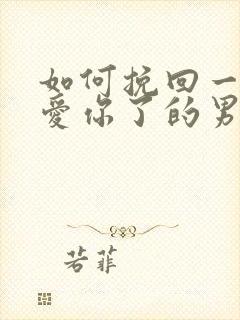 如何挽回一
爱你了的男
若菲